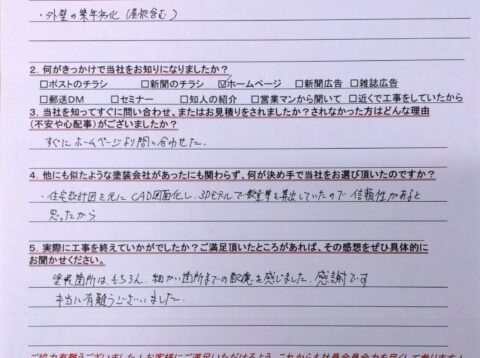 ・外壁の築年劣化（屋根含む）
2. 何がきっかけで当社をお知りになりましたか？
□ポストのチラシ □新聞のチラシ ☑ホームページ □新聞広告 □雑誌広告
□郵送DM □セミナー □知人の紹介 □営業マンから聞いて □近くで工事をしていたから
3. 当社を知ってすぐに問い合わせ、またはお見積りをされましたか？されなかった方はどんな理由
（不安や心配事）がございましたか？
すぐにホームページより問い合わせた。
4. 他にも似たような塗装会社があったにも関わらず、何が決め手で当社をお選び頂いたのですか？
・住宅設計図を元にCAD図面化し、3Dモデルで数量等を算出していたので信頼性があると
思ったから
5. 実際に工事を終えていかがでしたか？ご満足頂いたところがあれば、その感想をぜひ具体的に
お聞かせください。
塗装箇所は、もちろん、細かい箇所までの配慮を感じました。感謝です
本当に有難うございました。
ご協力有難うございました！お客様にご満足いただけるよう、これからも社員全員全力を尽くして参ります！